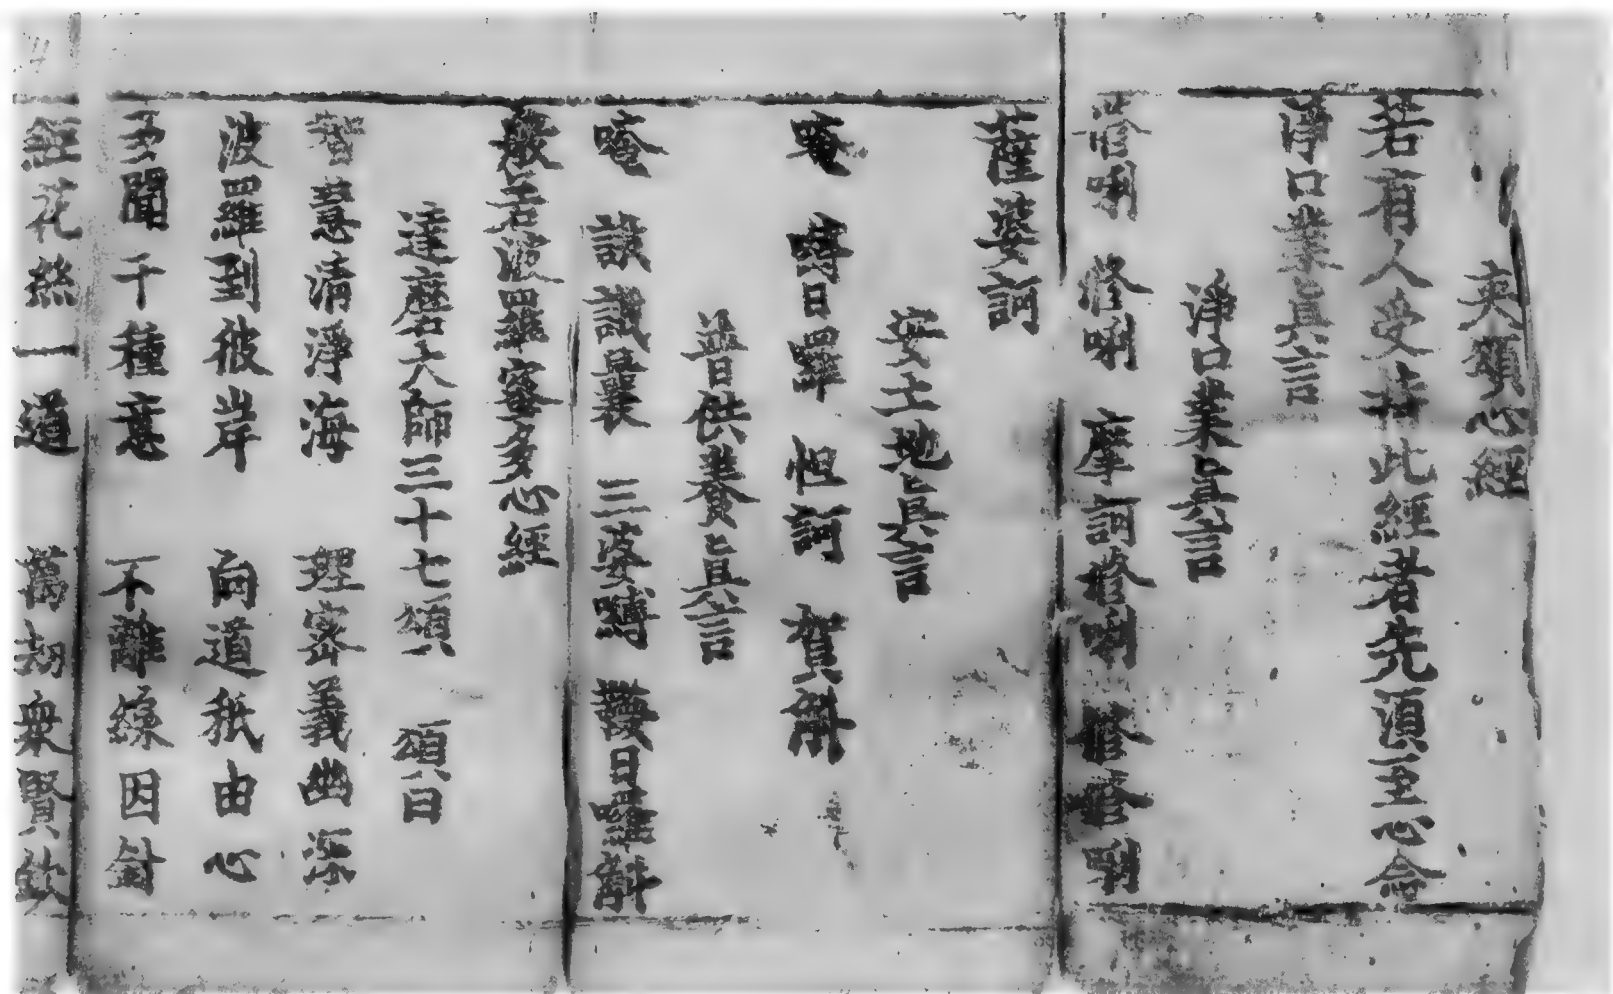 夾頌心經
若有人受持此經者先須至心念
淨口業真言
淨口業真言
脩唎 脩唎 摩訶脩唎 脩脩唎
薩婆訶
安土地真言
唵 嚩日羅 怛訶 賀斛
普供養真言
唵 誐誐曩 三婆嚩 韈日囉斛
般若波羅蜜多心經
達磨大師三十七頌 頌曰
智慧清淨海 理密義幽深
波羅到彼岸 向道秖由心
多聞千種意 不離線因針
經花絲一道 萬劫衆賢欽